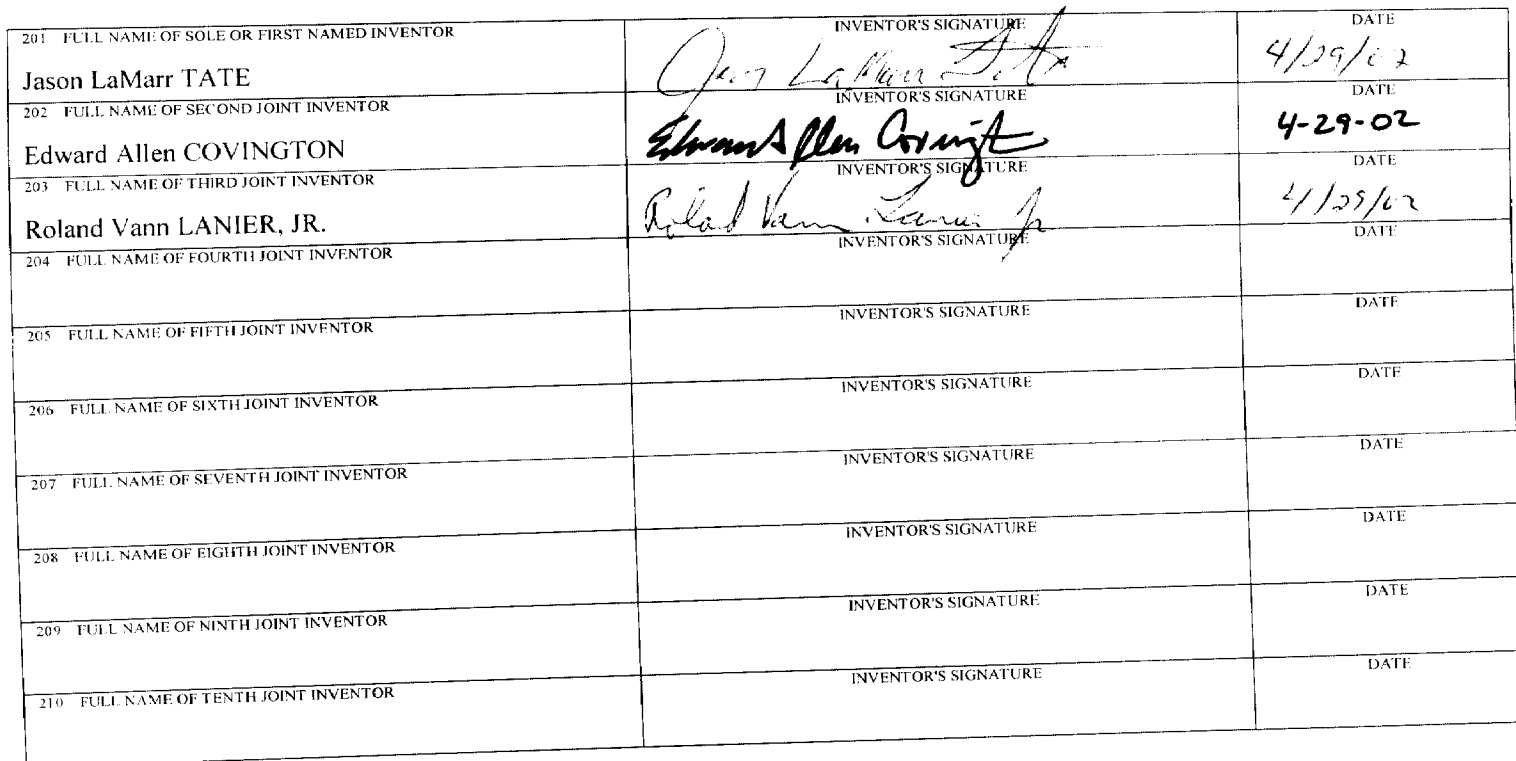 201 FULL NAME OF SOLE OR FIRST NAMED INVENTOR INVENTOR'S SIGNATURE DATE
Jason LaMarr TATE Jason LaMarr Tate 4/29/02
202 FULL NAME OF SECOND JOINT INVENTOR INVENTOR'S SIGNATURE DATE
Edward Allen COVINGTON Edward Allen Covingt 4-29-02
203 FULL NAME OF THIRD JOINT INVENTOR INVENTOR'S SIGNATURE DATE
Roland Vann LANIER, JR. Roland Vann Lanier Jr 4/29/02
204 FULL NAME OF FOURTH JOINT INVENTOR INVENTOR'S SIGNATURE DATE
205 FULL NAME OF FIFTH JOINT INVENTOR INVENTOR'S SIGNATURE DATE
206 FULL NAME OF SIXTH JOINT INVENTOR INVENTOR'S SIGNATURE DATE
207 FULL NAME OF SEVENTH JOINT INVENTOR INVENTOR'S SIGNATURE DATE
208 FULL NAME OF EIGHTH JOINT INVENTOR INVENTOR'S SIGNATURE DATE
209 FULL NAME OF NINTH JOINT INVENTOR INVENTOR'S SIGNATURE DATE
210 FULL NAME OF TENTH JOINT INVENTOR INVENTOR'S SIGNATURE DATE